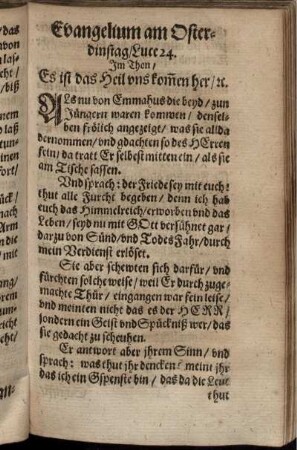 Evangelium am Oster-
dinstag/Luce 24.
Im Thon/
Es ist das Heil vns kom̃en her/ ꝛc.
ALs nu von Emmahus die beyd/ zun
Jüngern waren kommen/ densel-
ben frölich angezeigt/ was sie allda
vernommen/ vnd gdachten so des HErren
sein/ da tratt Er selbest mitten ein/ als sie
am Tische sassen.
Vnd sprach: der Friede sey mit euch:
thut alle Furcht begeben/ denn ich hab
euch das Himmelreich/ erworben vnd das
Leben/ seyd nu mit GOtt versühnet gar/
darzu von Sünd/ vnd Todes Fahr/ durch
mein Verdienst erlöset.
Sie aber schewten sich darfür/ vnd
fürchten solche weise/ weil Er durch zuge-
machte Thür/ eingangen war fein leise/
vnd meinten nicht das es der HERR/
sondern ein Geist vnd Spückniß wer/ das
sie gedacht zu scheuhen.
Er antwort aber jhrem Sinn/ vnd
sprach: was thut jhr dencken? meint jhr
das ich ein Gspenste bin/ das da die Leut
thut
das
von
las-
cht/
/biß
end
laß
tun-
inen
fort/
ück/
nach
Arm
nd
um-
richt
eht/